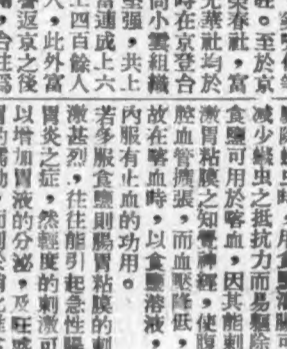 至於京
榮春社，富
光華社均於
時在京登台
尚小雲組織
堅强，共上
富連成上六
上四百餘人
人，此外富
譽返京之後
減少蟯虫之抵抗力而易驅除
食鹽可用於咯血，因其能刺
激胃粘膜之知覺神經，使腹
腔血管擴張，而血壓降低，
故在咯血時，以食鹽溶液，
內服有止血的功用。
若多服食鹽則腸胃粘膜的刺
激甚烈，往往能引起急性腸
胃炎之症，然輕度的刺激可
以增加胃液的分泌，及旺盛